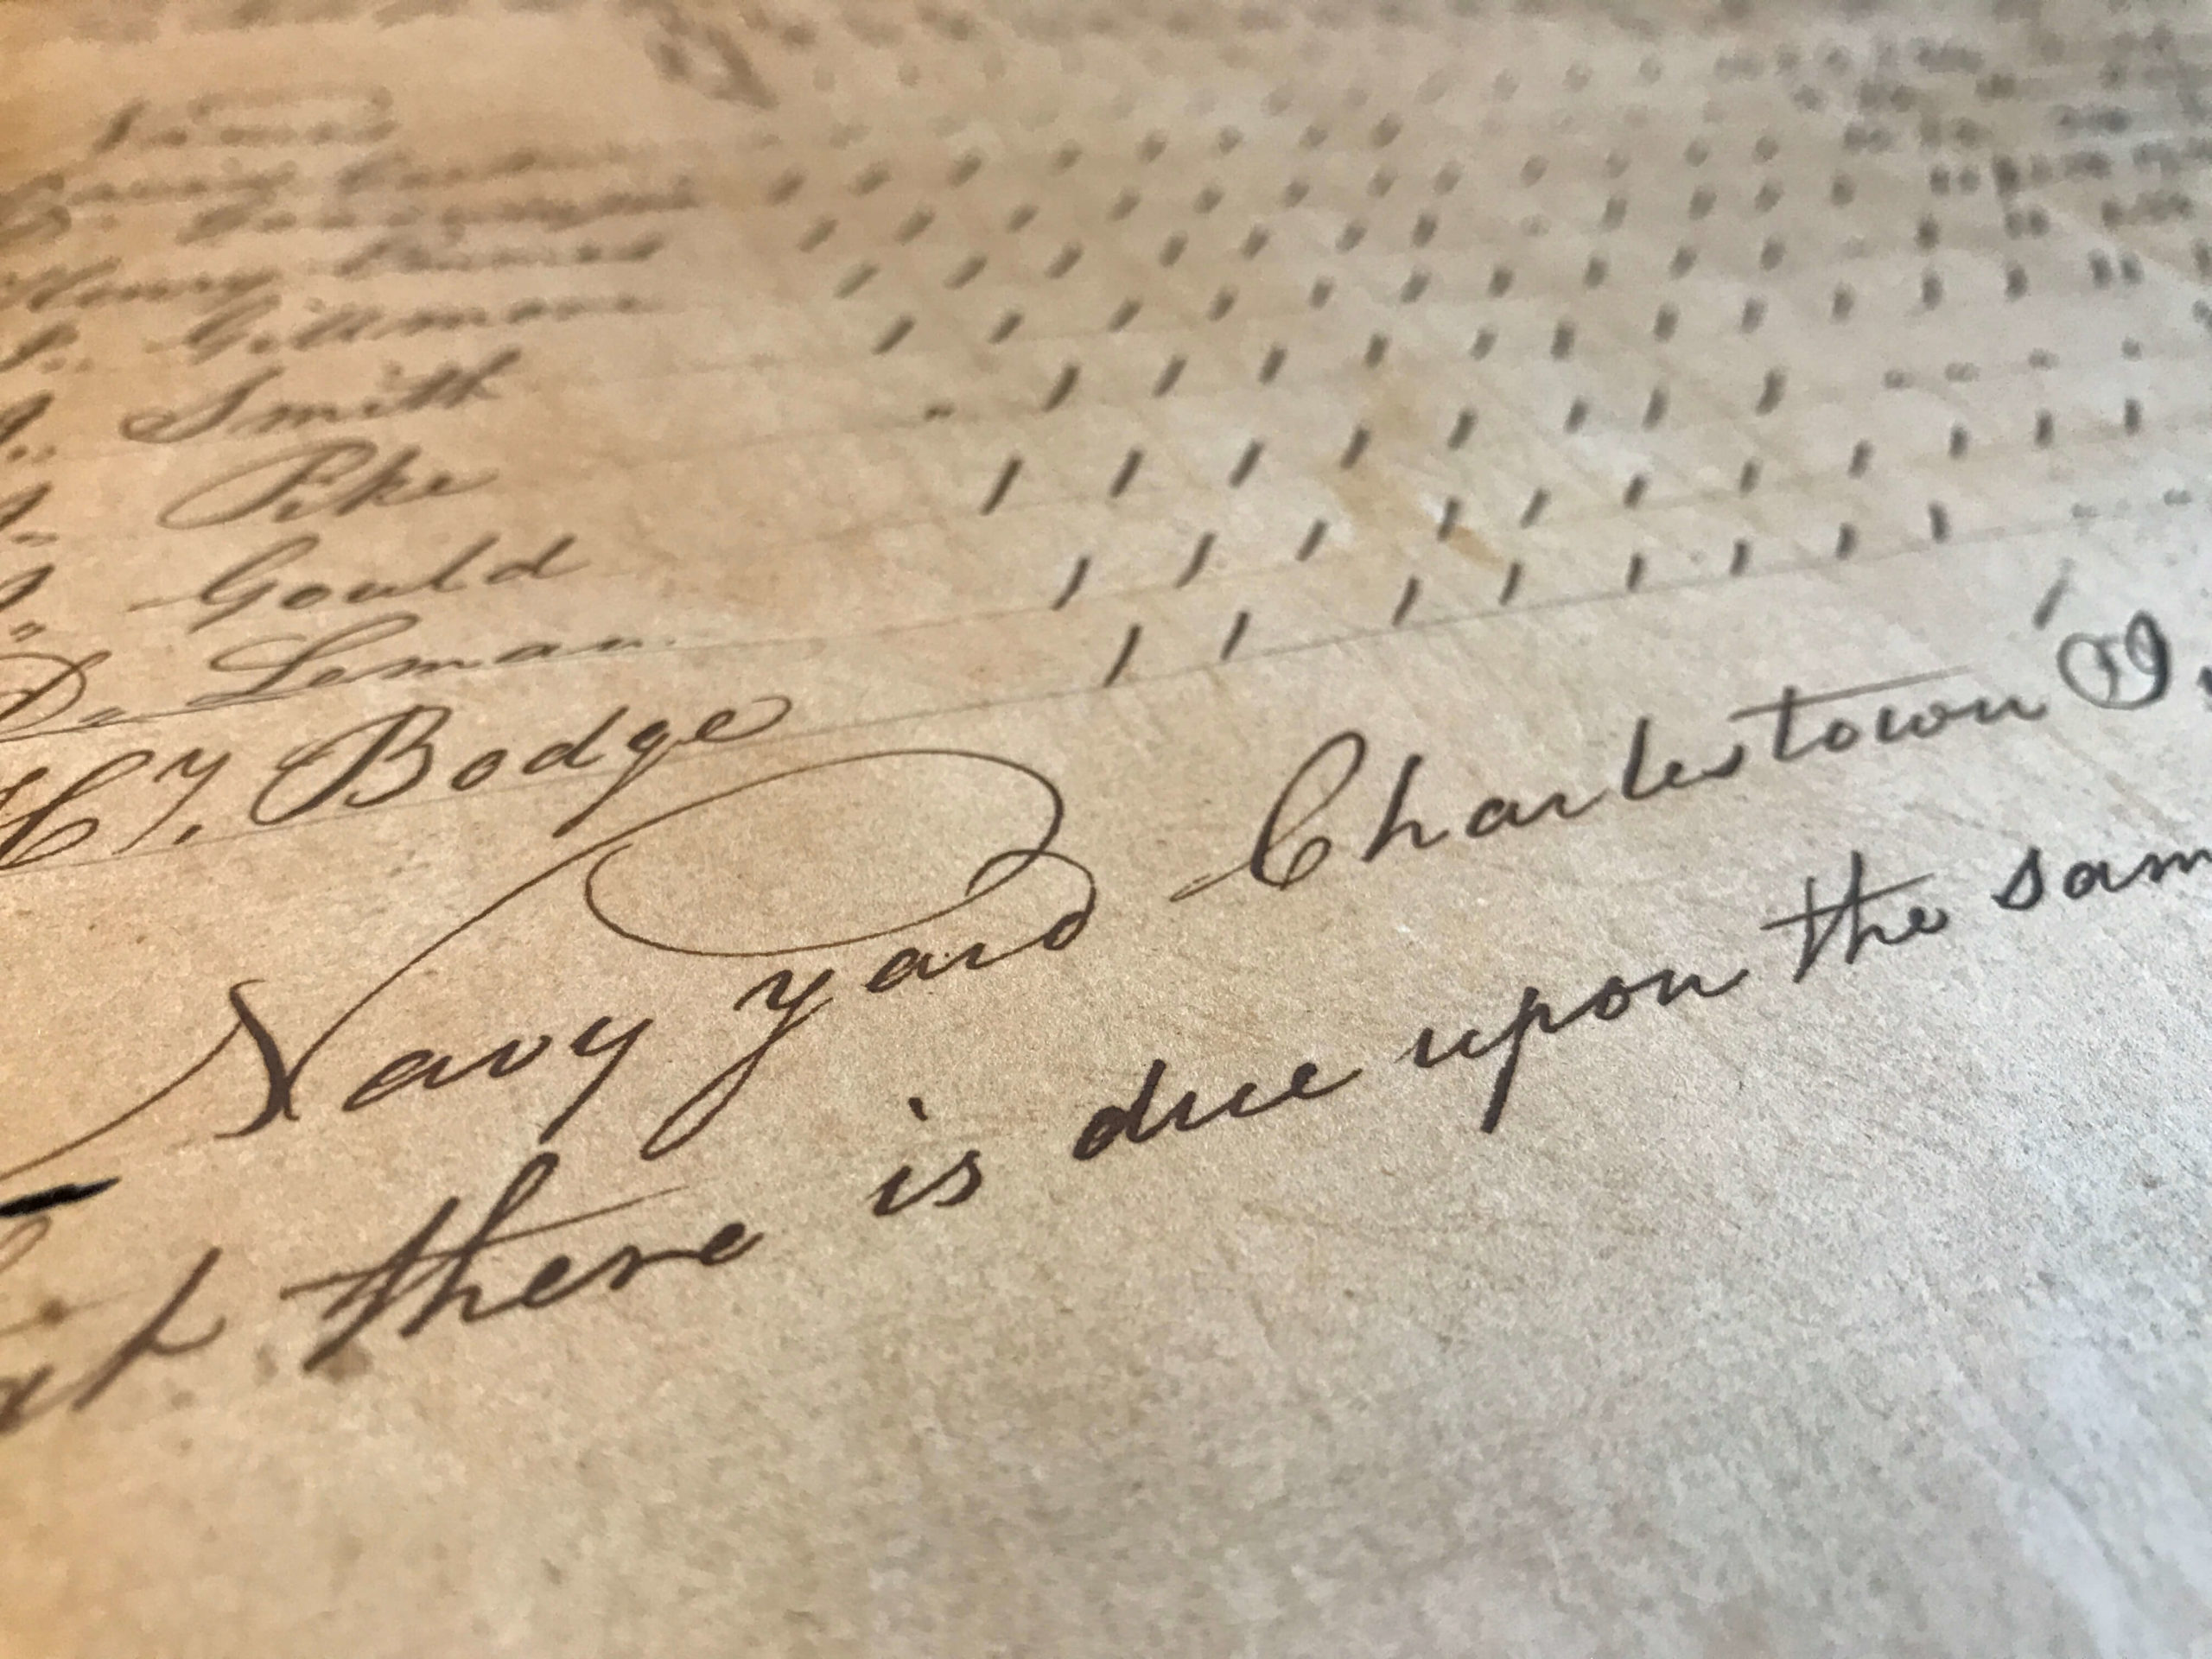 Names
Henry
Gillmore
Smith
Pike
Gould
D. Leman
Hy, Bodge
Navy yard Charlestown
at there is due upon the sam